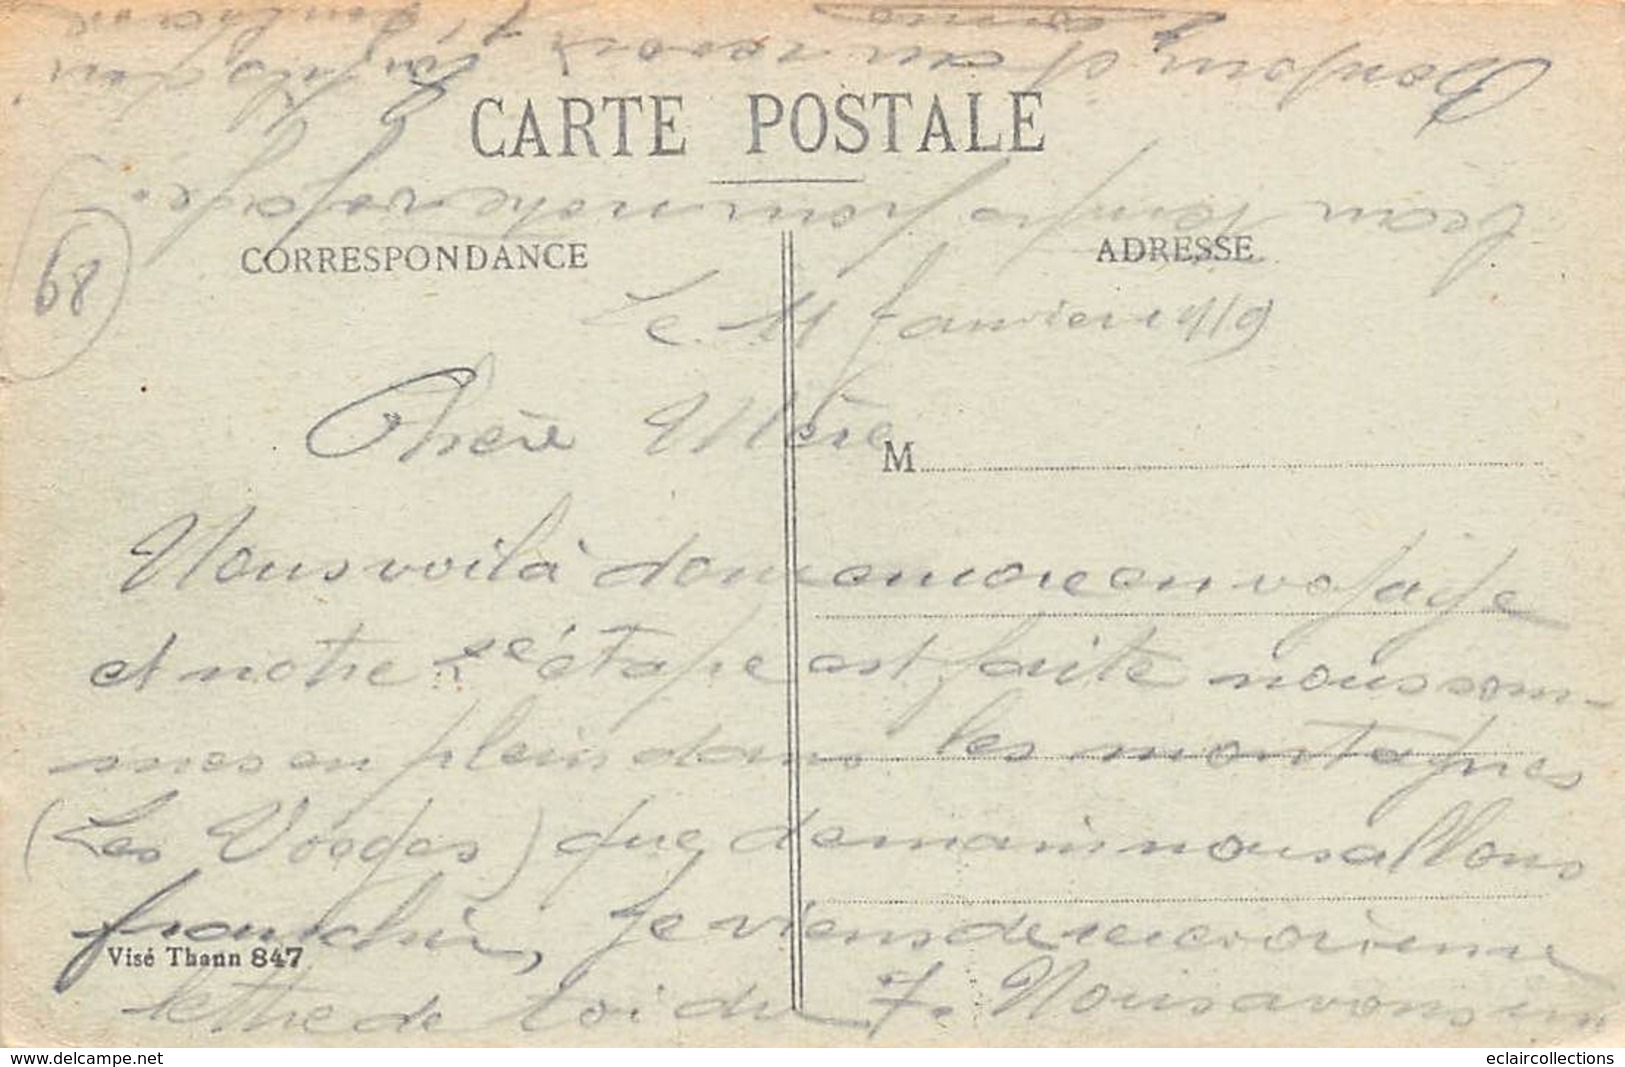 CARTE POSTALE
CORRESPONDANCE
ADRESSE
68
Le 11 Janvier 1919
Chère Mère
M
Nous voilà donc encore en voyage
et notre 2e étape est faite nous som-
mes en plein dans les montagnes
(Les Vosges) que demain nous allons
franchir, je viens de recevoir une
lettre de toi du 7. Nous avons un
beau temps pour notre voyage.
Bonjour et au revoir
Visé Thann 847
www.delcampe.net
eclaircollections